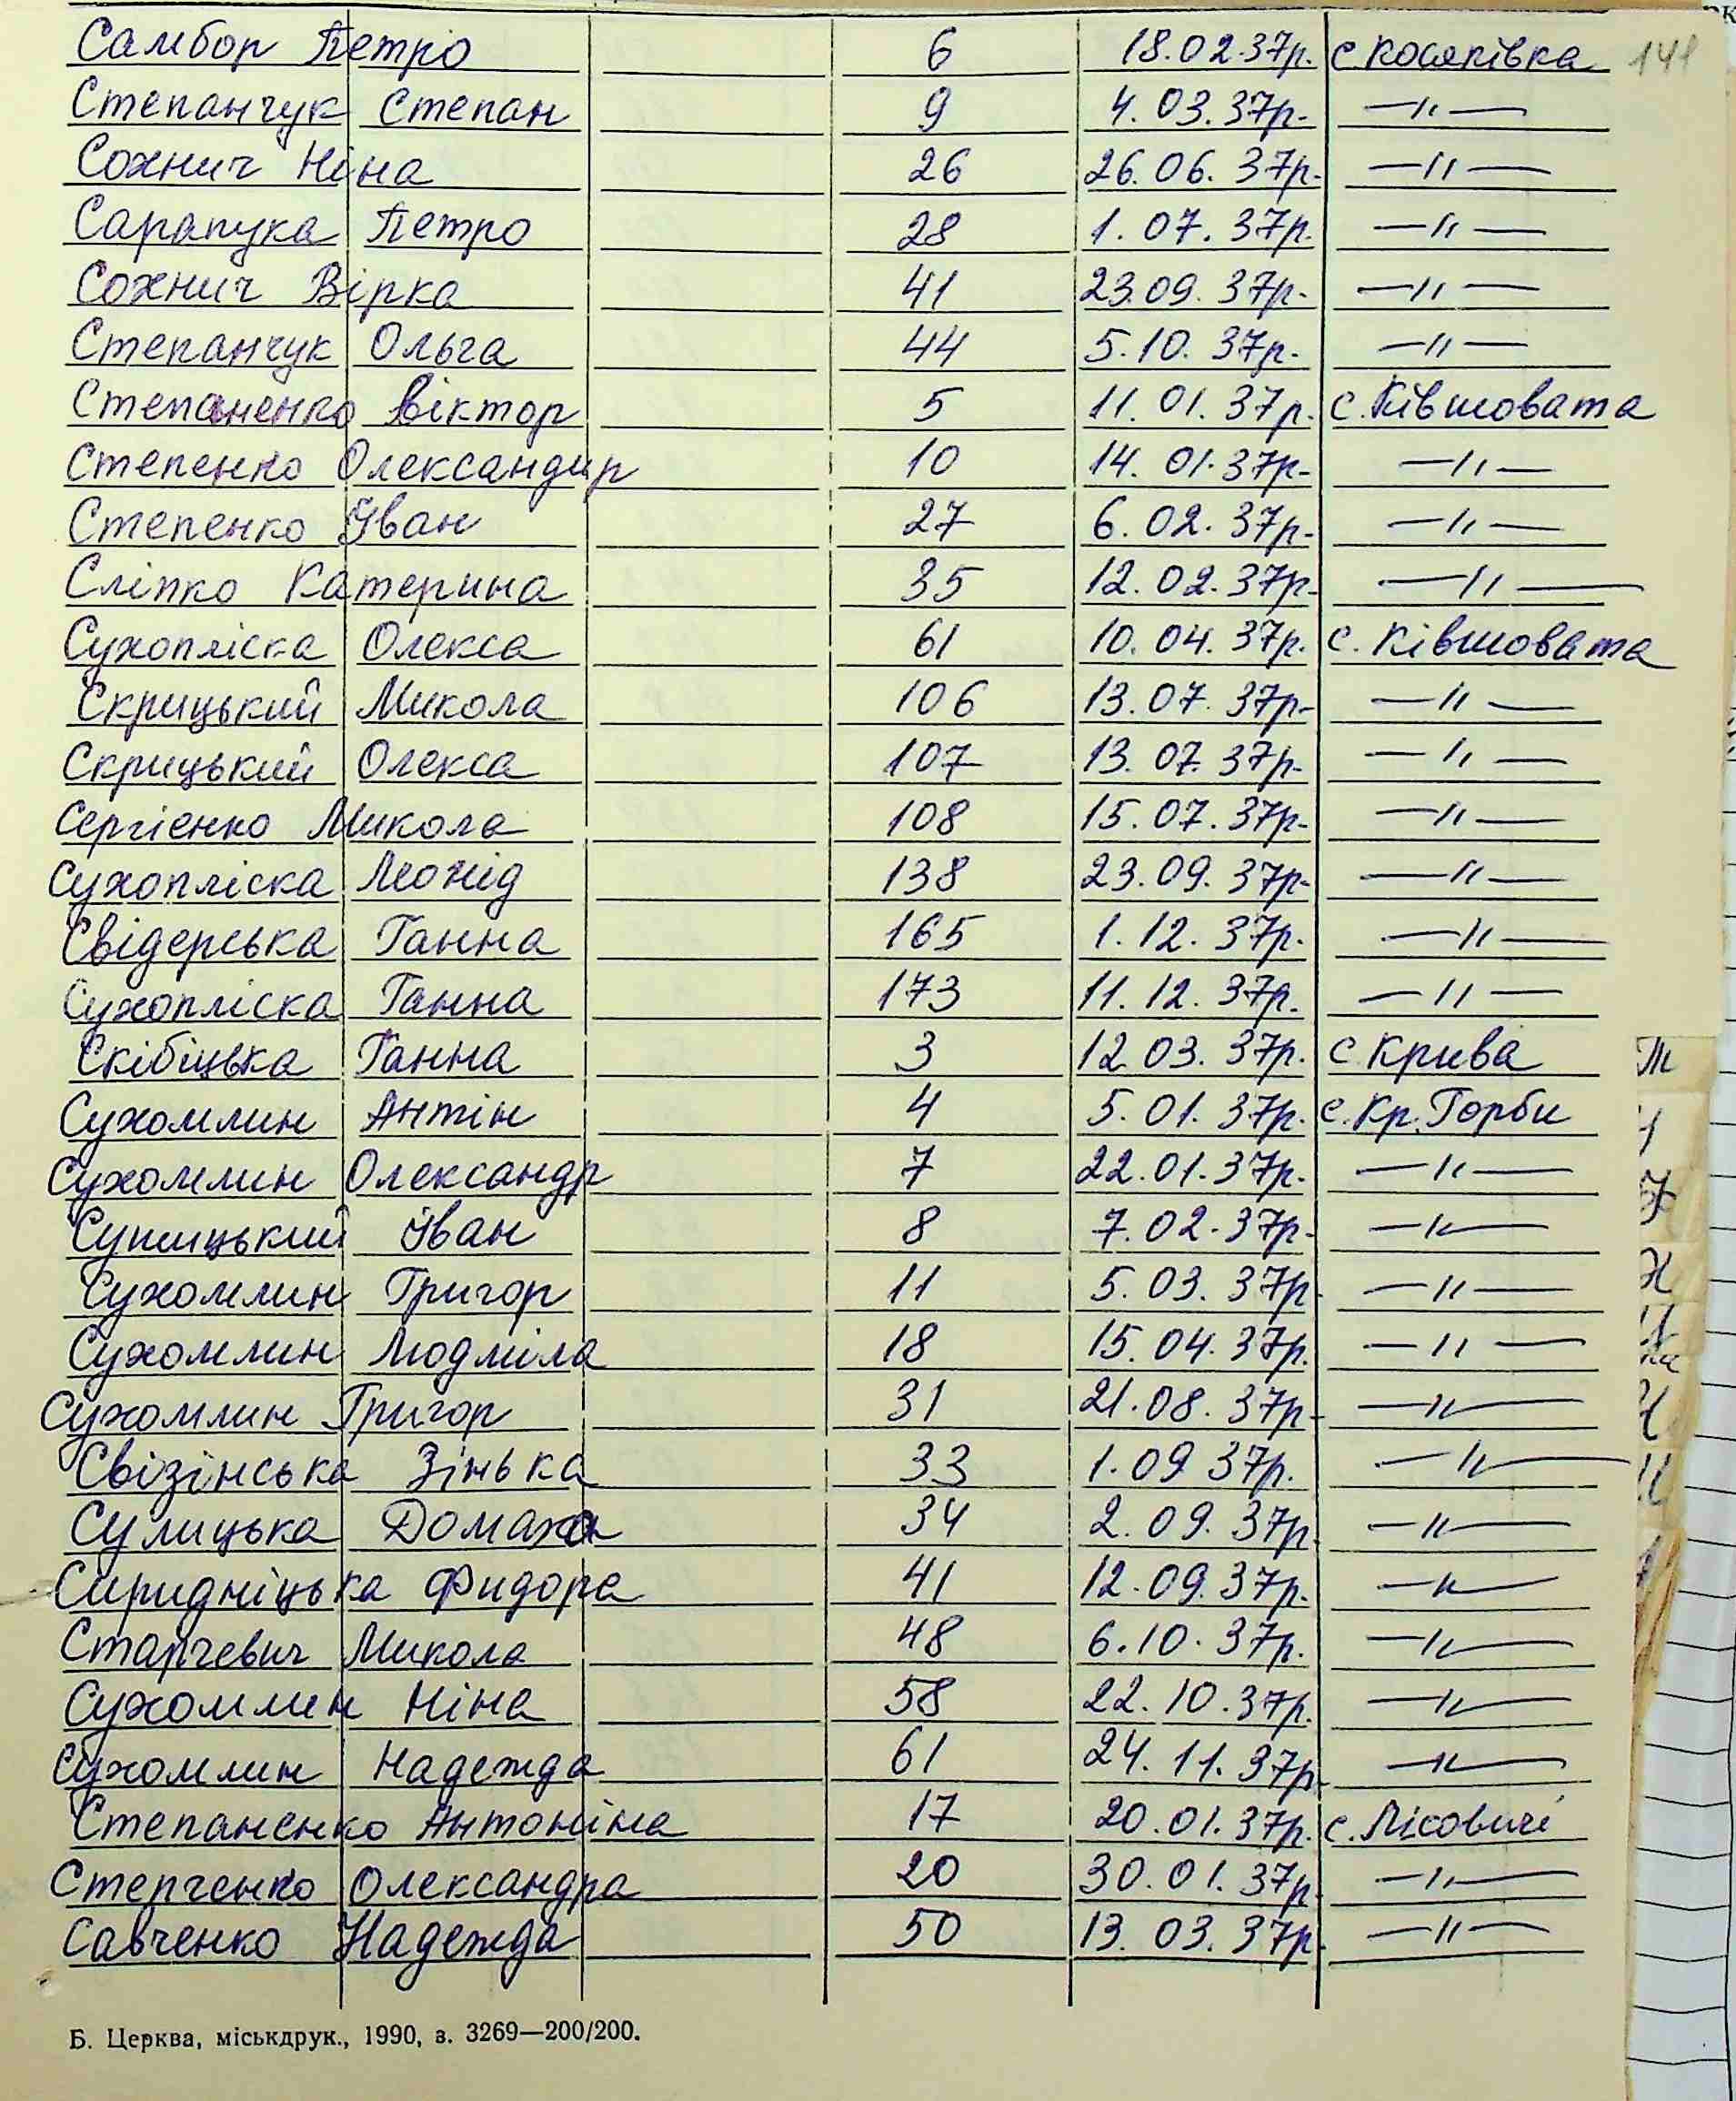 Самбор Петро 6 18.02.37р. с. Косяківка 141
Степанчук Степан 9 4.03.37р. —"—
Сохнич Ніна 26 26.06.37р. —"—
Сарапука Петро 28 1.07.37р. —"—
Сохнич Вірка 41 23.09.37р. —"—
Степанчук Ольга 44 5.10.37р. —"—
Степаненко Віктор 5 11.01.37р. с. Ківшовата
Степенко Олександир 10 14.01.37р. —"—
Степенко Іван 27 6.02.37р. —"—
Сліпко Катерина 35 12.02.37р. —"—
Сухопліска Олекса 61 10.04.37р. с. Ківшовата
Скрицький Микола 106 13.07.37р. —"—
Скрицький Олекса 107 13.07.37р. —"—
Сергієнко Микола 108 15.07.37р. —"—
Сухопліска Леонід 138 23.09.37р. —"—
Свідерська Ганна 165 1.12.37р. —"—
Сухопліска Ганна 173 11.12.37р. —"—
Скібіцька Ганна 3 12.03.37р. с. Крива
Сухомлин Антін 4 5.01.37р. с. Кр. Горби
Сухомлин Олександр 7 22.01.37р. —"—
Іван 8 7.02.37р. —"—
Сухомлин Григор 11 5.03.37р. —"—
Сухомлин Людміла 18 15.04.37р. —"—
Сухомлин Григор 31 21.08.37р. —"—
Свізінська Зінька 33 1.09.37р. —"—
Сулицька Домаха 34 2.09.37р. —"—
Сиридніцька Фидора 41 12.09.37р. —"—
Старчевич Микола 48 6.10.37р. —"—
Сухомлин Ніна 58 22.10.37р. —"—
Сухомлин Надежда 61 24.11.37р. —"—
Степаненко Антоніна 17 20.01.37р. с. Лісовичі
Стерченко Олександра 20 30.01.37р. —"—
Савченко Надежда 50 13.03.37р. —"—
Б. Церква, міськдрук., 1990, з. 3269—200/200.